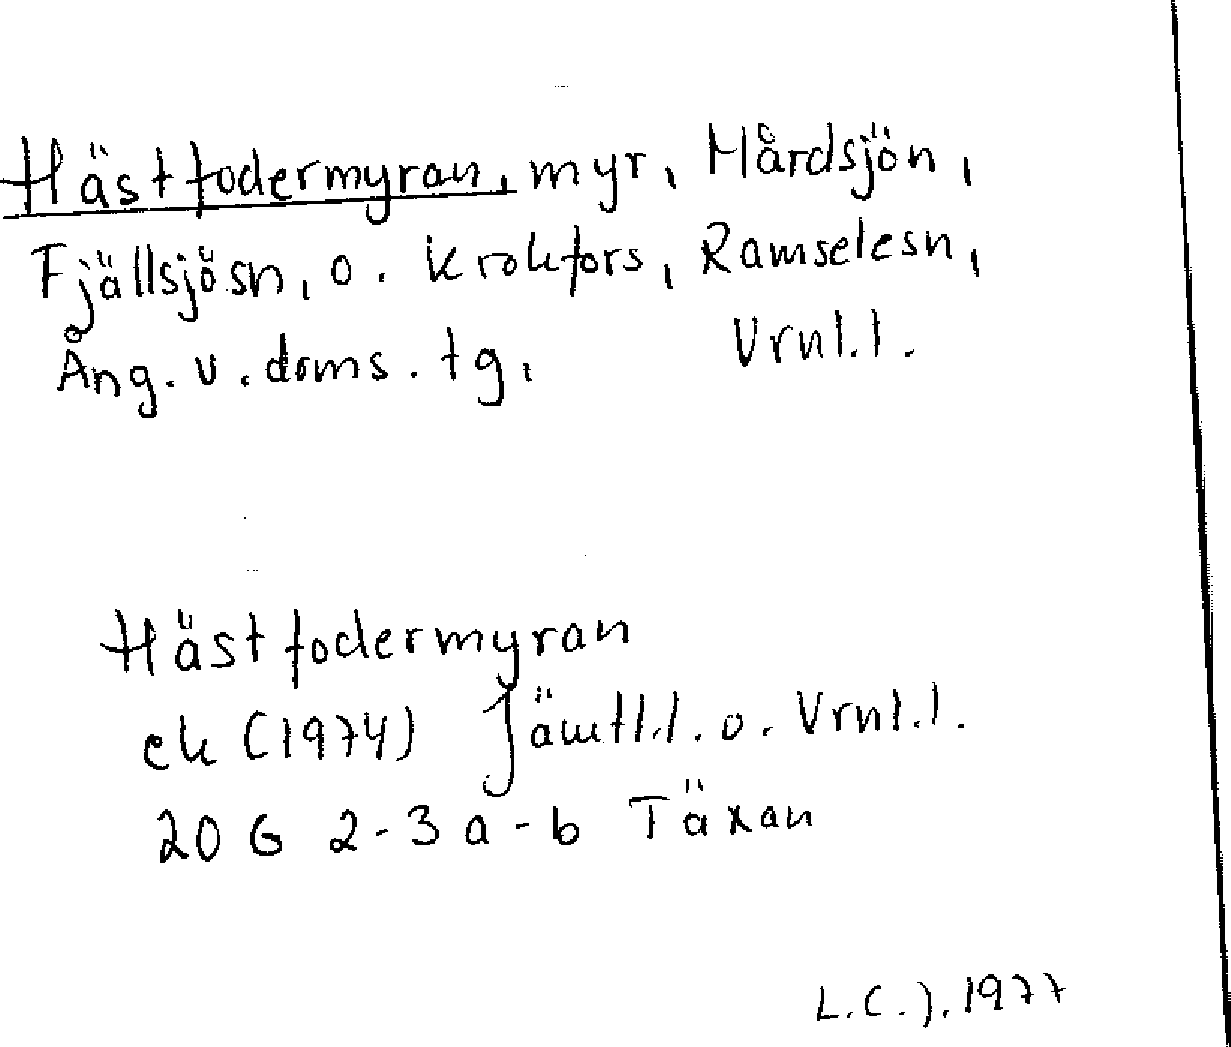 Hästfodermyran, myr, Hårdsjön,
Fjällsjösn, o. Krokfors, Ramselesn,
Ång. v. doms. tg, Vrnl.l.
Hästfodermyran
ek (1974) Jämtl.l. o. Vrnl.l.
20 G 2-3 a-b Täxan
L.C.J. 1977